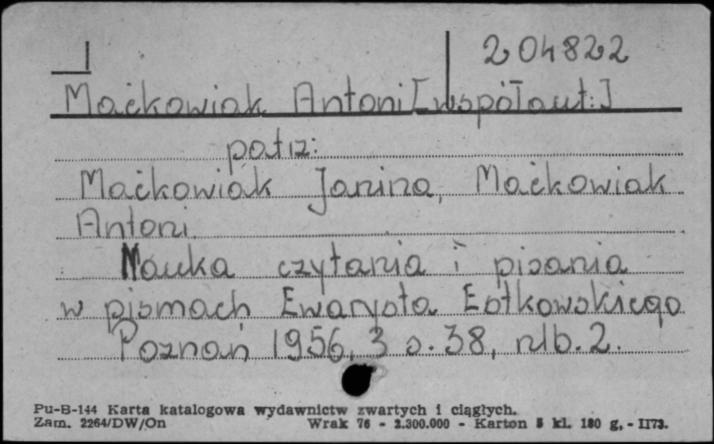 204822
Maćkowiak Antoni [współaut:]
patrz:
Maćkowiak Janina, Maćkowiak
Antoni.
Nauka czytania i pisania
w pismach Ewarysta Estkowskiego
Poznań 1956, 3 s. 38, nlb. 2.
Pu-B-144 Karta katalogowa wydawnictw zwartych i ciągłych.
Zam. 2264/DW/On Wrak 76 - 2.300.000 - Karton 5 kl. 180 g. - II73.